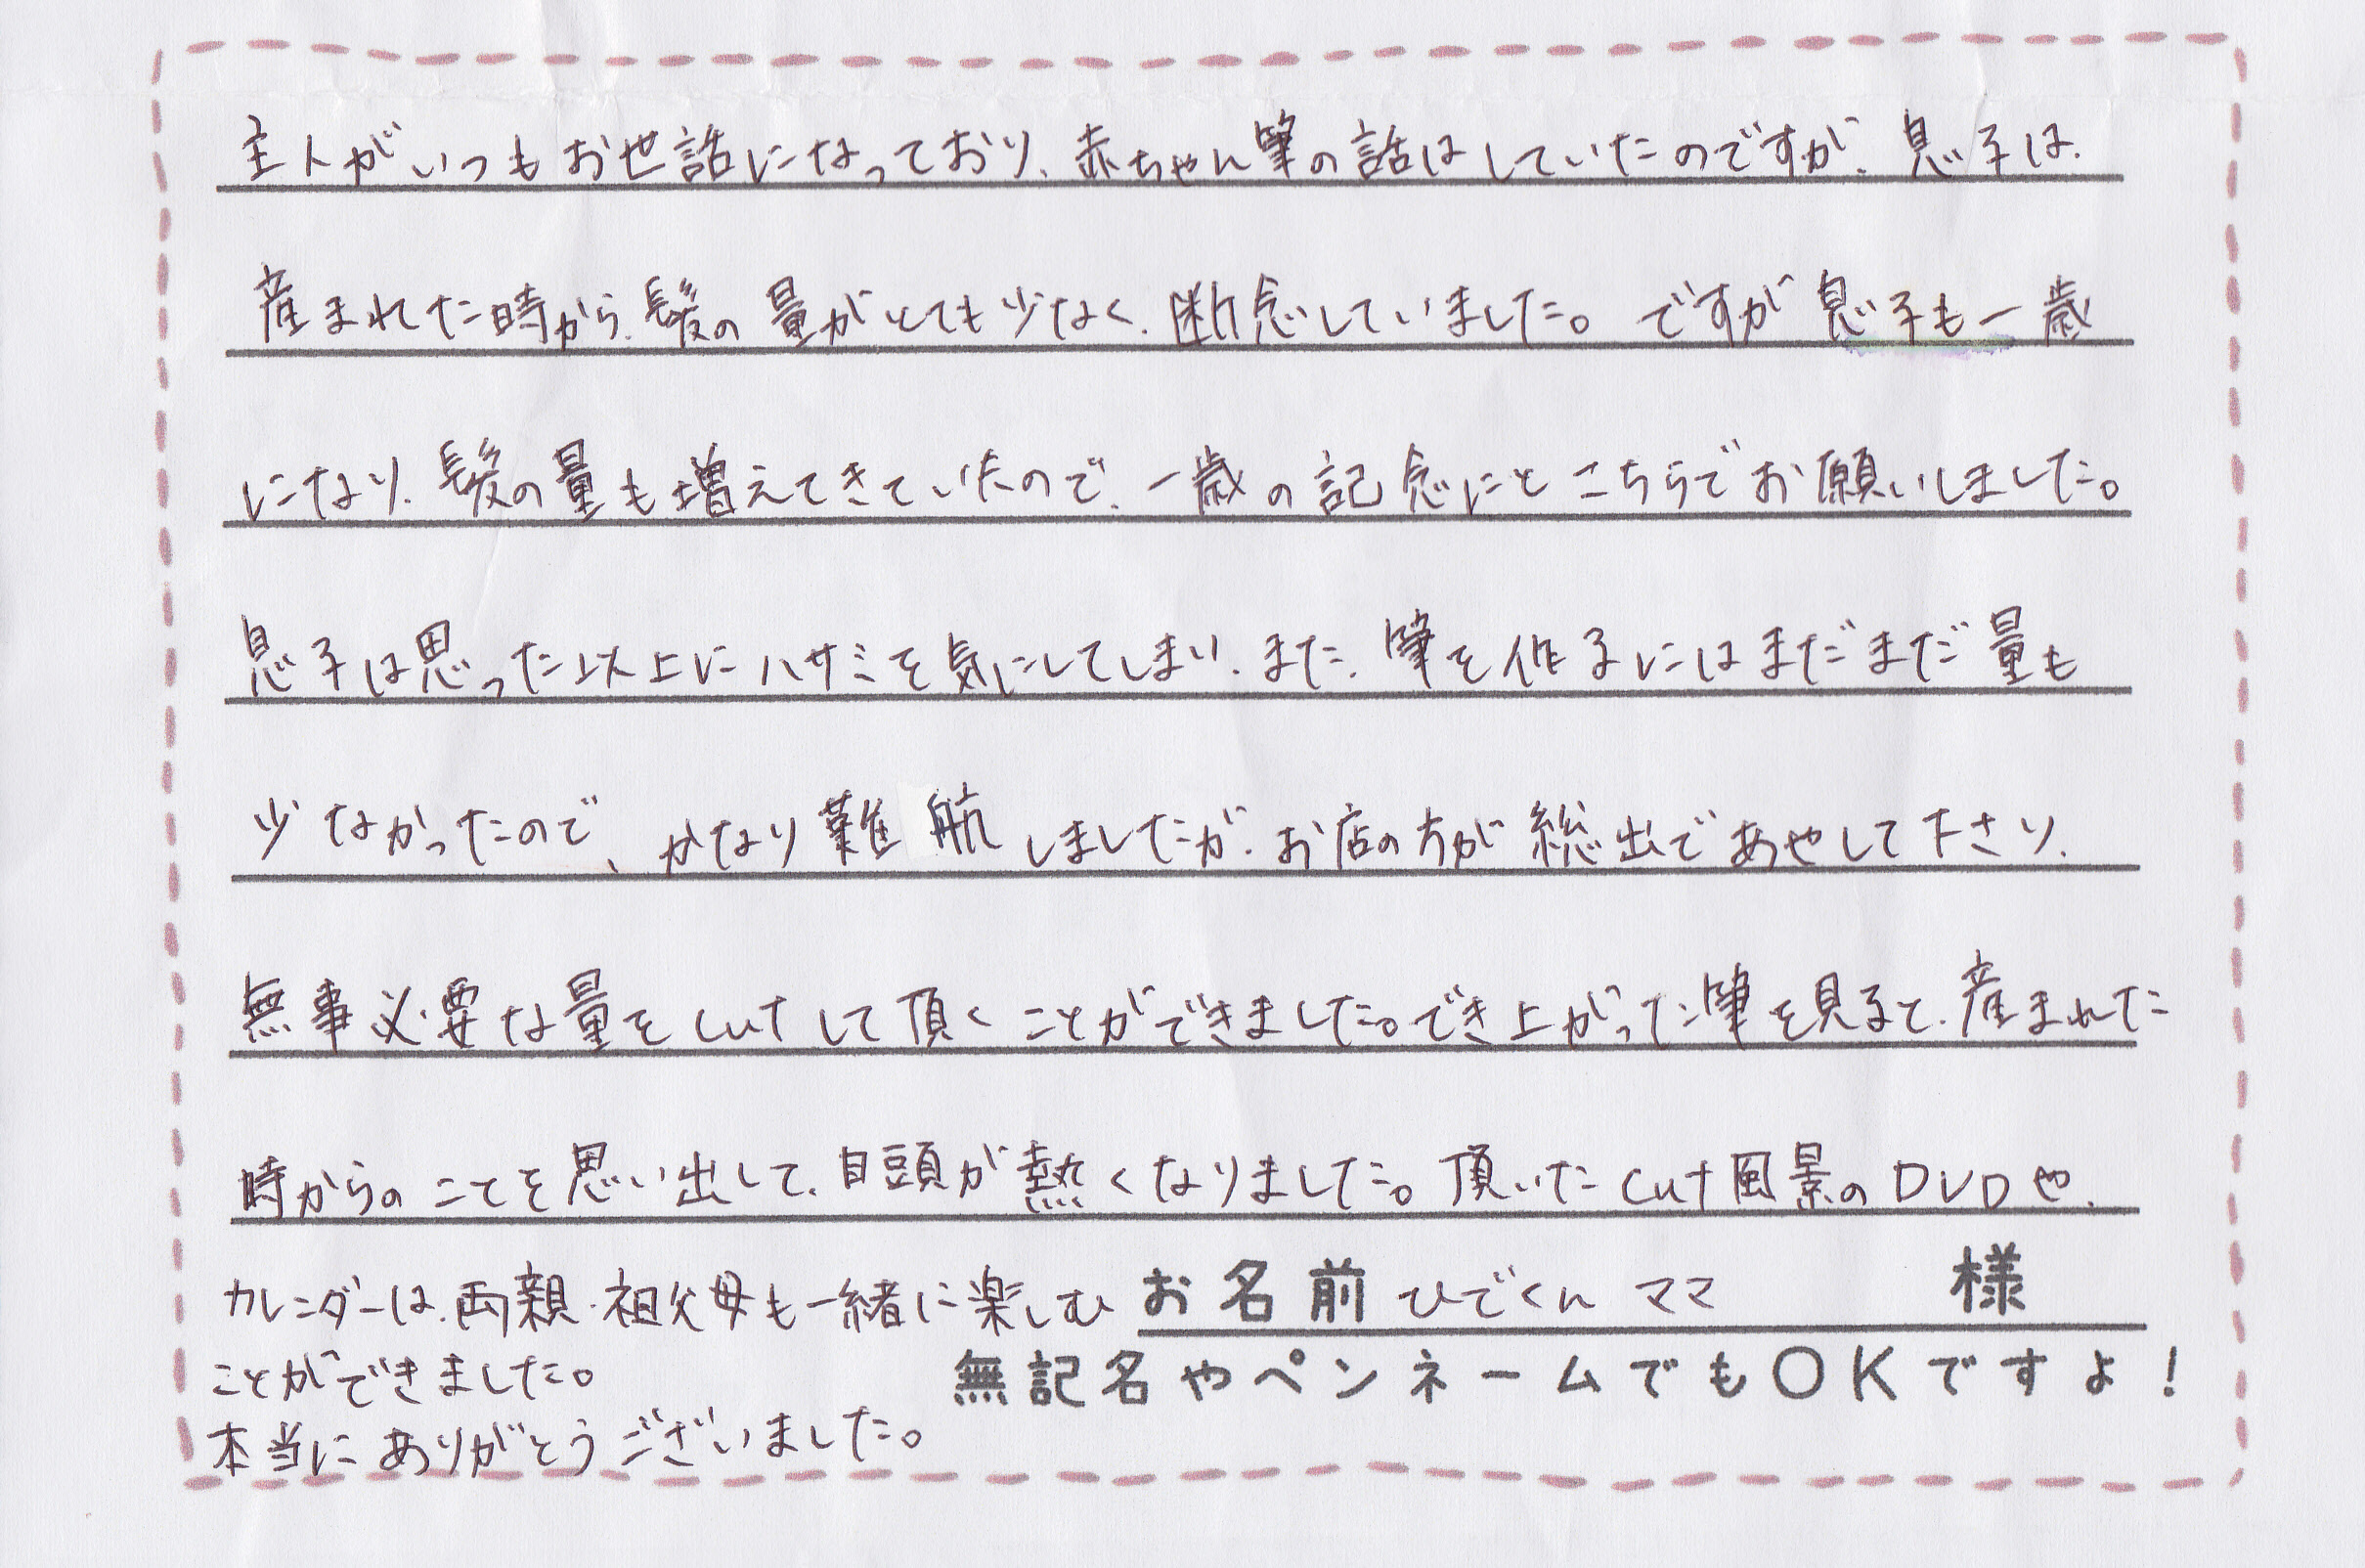 主人がいつもお世話になっており、赤ちゃん筆の話はしていたのですが、息子は、
産まれた時から、髪の量がとても少なく、断念していました。ですが息子も一歳
になり、髪の量も増えてきていたので、一歳の記念にとこちらでお願いしました。
息子は思った以上にハサミを気にしてしまい、また、筆を作るにはまだまだ量も
少なかったので、かなり難航しましたが、お店の方が総出であやして下さり、
無事必要な量をcutして頂くことができました。でき上がった筆を見ると、産まれた
時からのことを思い出して、目頭が熱くなりました。頂いたcut風景のDVDや、
カレンダーは、両親・祖父母も一緒に楽しむ
ことができました。
本当にありがとうございました。
お名前 ひでくんママ 様
無記名やペンネームでもOKですよ！